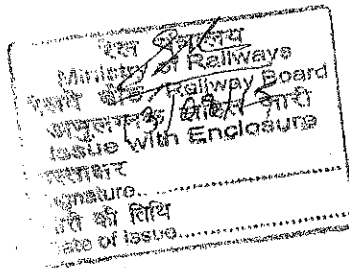 रेल मंत्रालय
Ministry of Railways
रेलवे बोर्ड / Railway Board
जारी
Issue with Enclosure
Signature
जारी की तिथि
Date of Issue